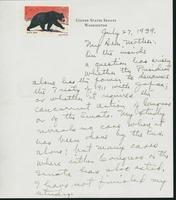 UNITED STATES SENATE
WASHINGTON
July 27, 1939.
My Dear Mother:
In the inside
a question has arisen
whether the President
alone has the power to denounce
the Treaty of 1911 with Japan,
or whether it requires the
concurrent action of Congress
or of the Senate. My study
reveals no case where it
has been done by the Pres.
alone; but many cases
where either Congress or the
Senate has also acted.
I have not finished my
study.